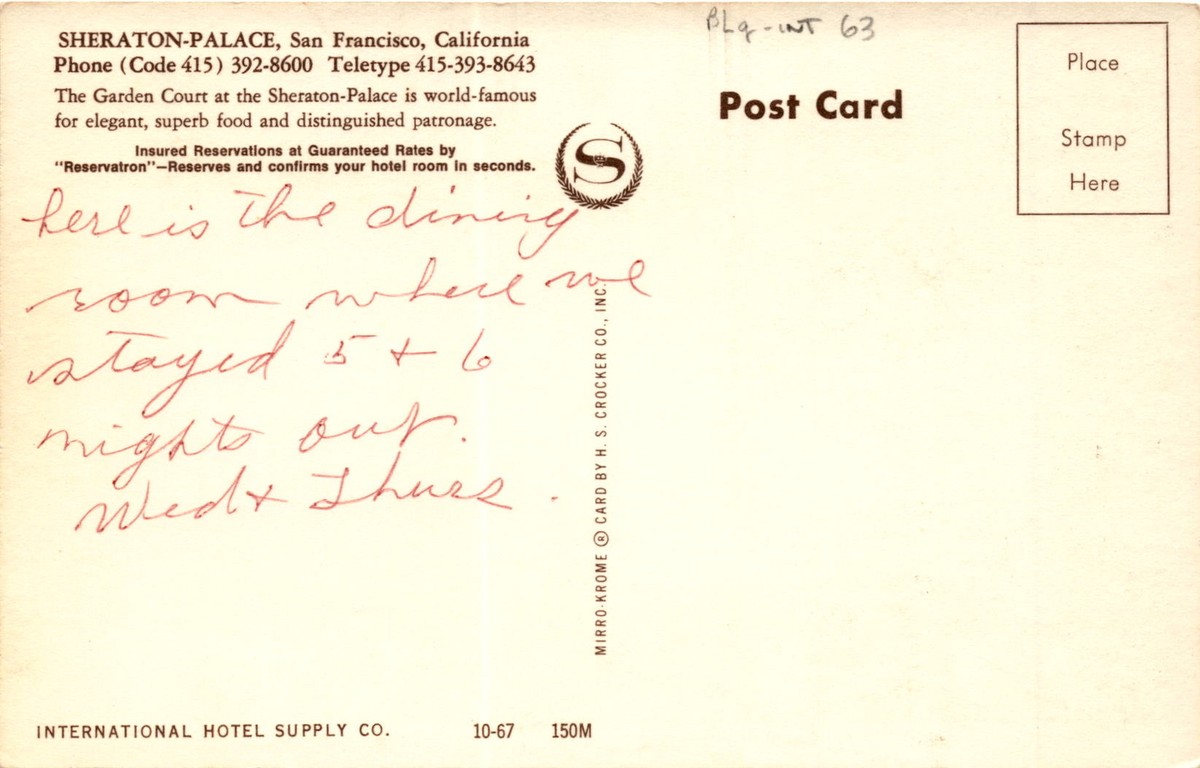 SHERATON-PALACE, San Francisco, California
Phone (Code 415) 392-8600 Teletype 415-393-8643
The Garden Court at the Sheraton-Palace is world-famous
for elegant, superb food and distinguished patronage.
Insured Reservations at Guaranteed Rates by
"Reservatron"—Reserves and confirms your hotel room in seconds.
S
here is the dining
room where we
stayed 5 + 6
nights out.
Wed + Thurs.
INTERNATIONAL HOTEL SUPPLY CO. 10-67 150M
MIRRO-KROME ® CARD BY H. S. CROCKER CO., INC.
BLg-INT 63
Post Card
Place
Stamp
Here